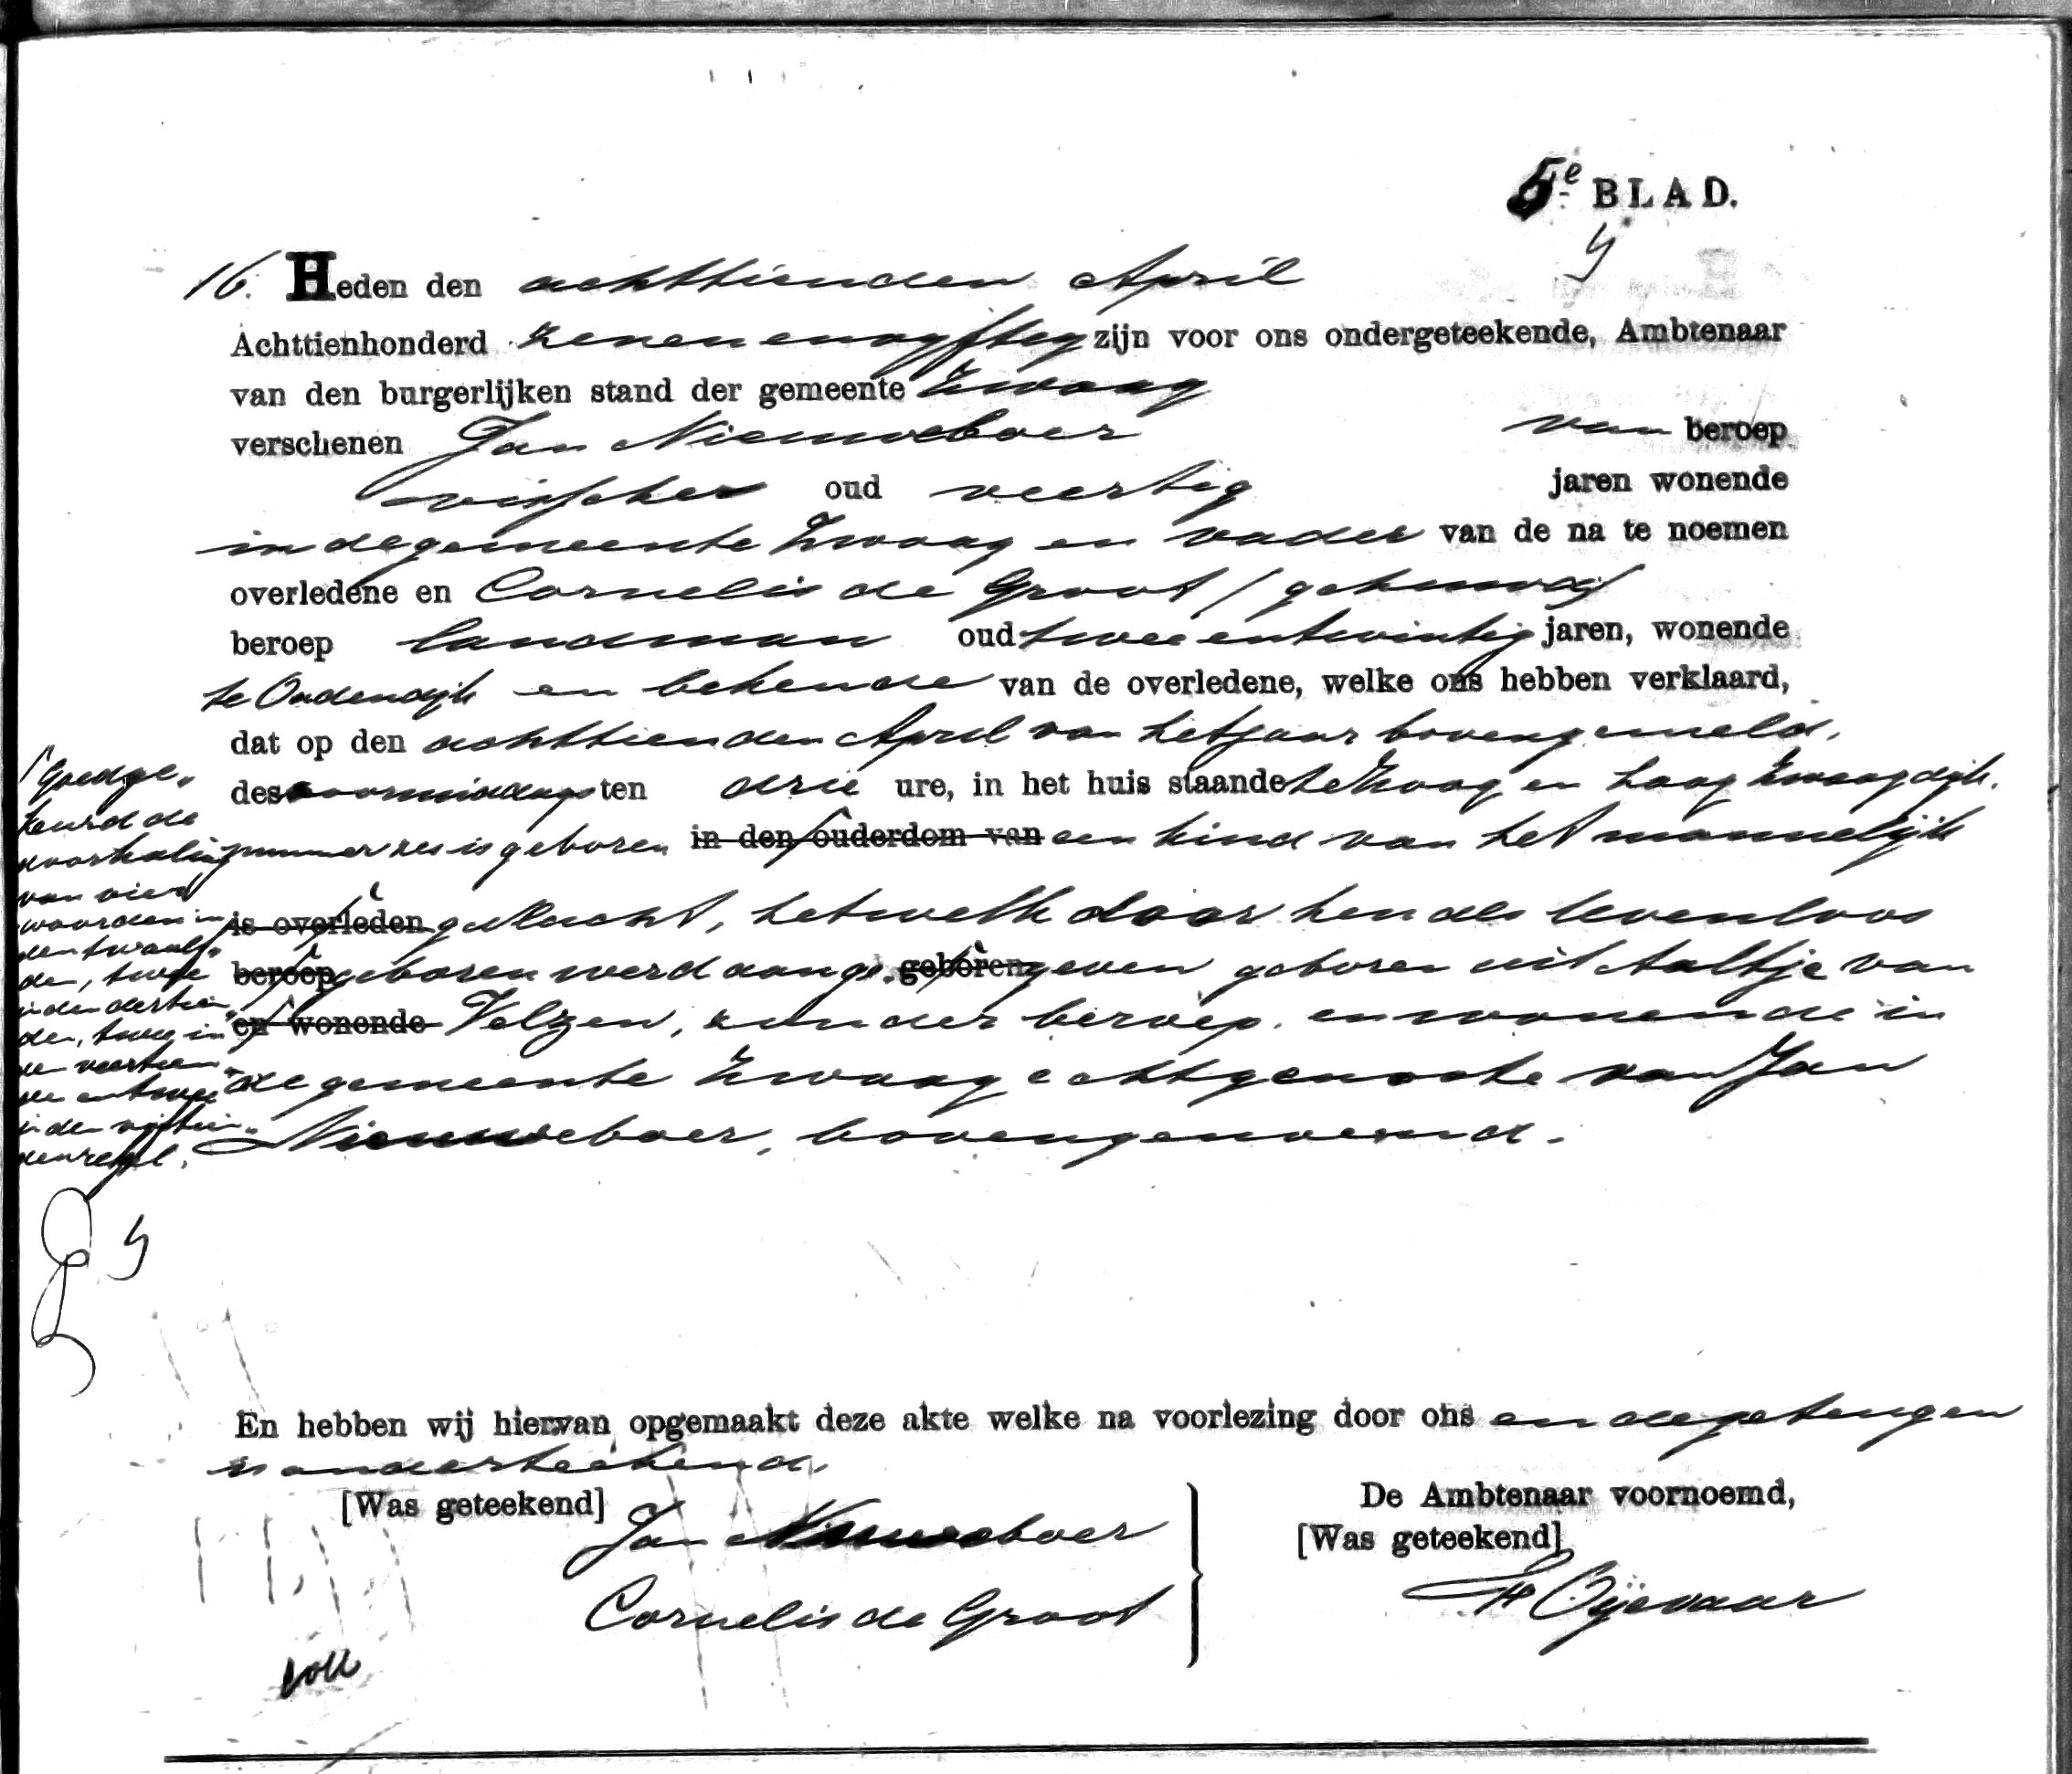 5e BLAD.
16. Heden den achttienden April
Achttienhonderd zeven en vyftig zijn voor ons ondergeteekende, Ambtenaar
van den burgerlijken stand der gemeente Zwaag
verschenen Jan Nieuweboer van beroep
visscher oud veertig jaren wonende
in de gemeente Zwaag en vader van de na te noemen
overledene en Cornelis de Groot / gehuwd
beroep landman oud twee en twintig jaren, wonende
te Oudendijk en bekende van de overledene, welke ons hebben verklaard,
dat op den achttienden April van het jaar bovengemeld,
des voormiddags ten drie ure, in het huis staande te Zwaag en Laag Zwaagdijk.
nummer zes is geboren in den ouderdom van een kind van het mannelijk
is overleden geslacht, hetwelk door hen als levenloos
beroep geboren werd aange geboren geven geboren uit Aaltje van
en wonende Velzen, zonder beroep en wonende in
de gemeente Zwaag echtgenoote van Jan
Nieuweboer, bovengenoemd.
Goedge„
keurd de
doorhaling
van vier
woorden in
den twaalf„
den, twee
in den dertien„
den, twee in
den veertien„
den en twee
in den vijftien„
den regel.
En hebben wij hiervan opgemaakt deze akte welke na voorlezing door ons en de getuigen
is onderteekend.
[Was geteekend] Jan Nieuweboer
Cornelis de Groot
De Ambtenaar voornoemd,
[Was geteekend]
Bijevaar